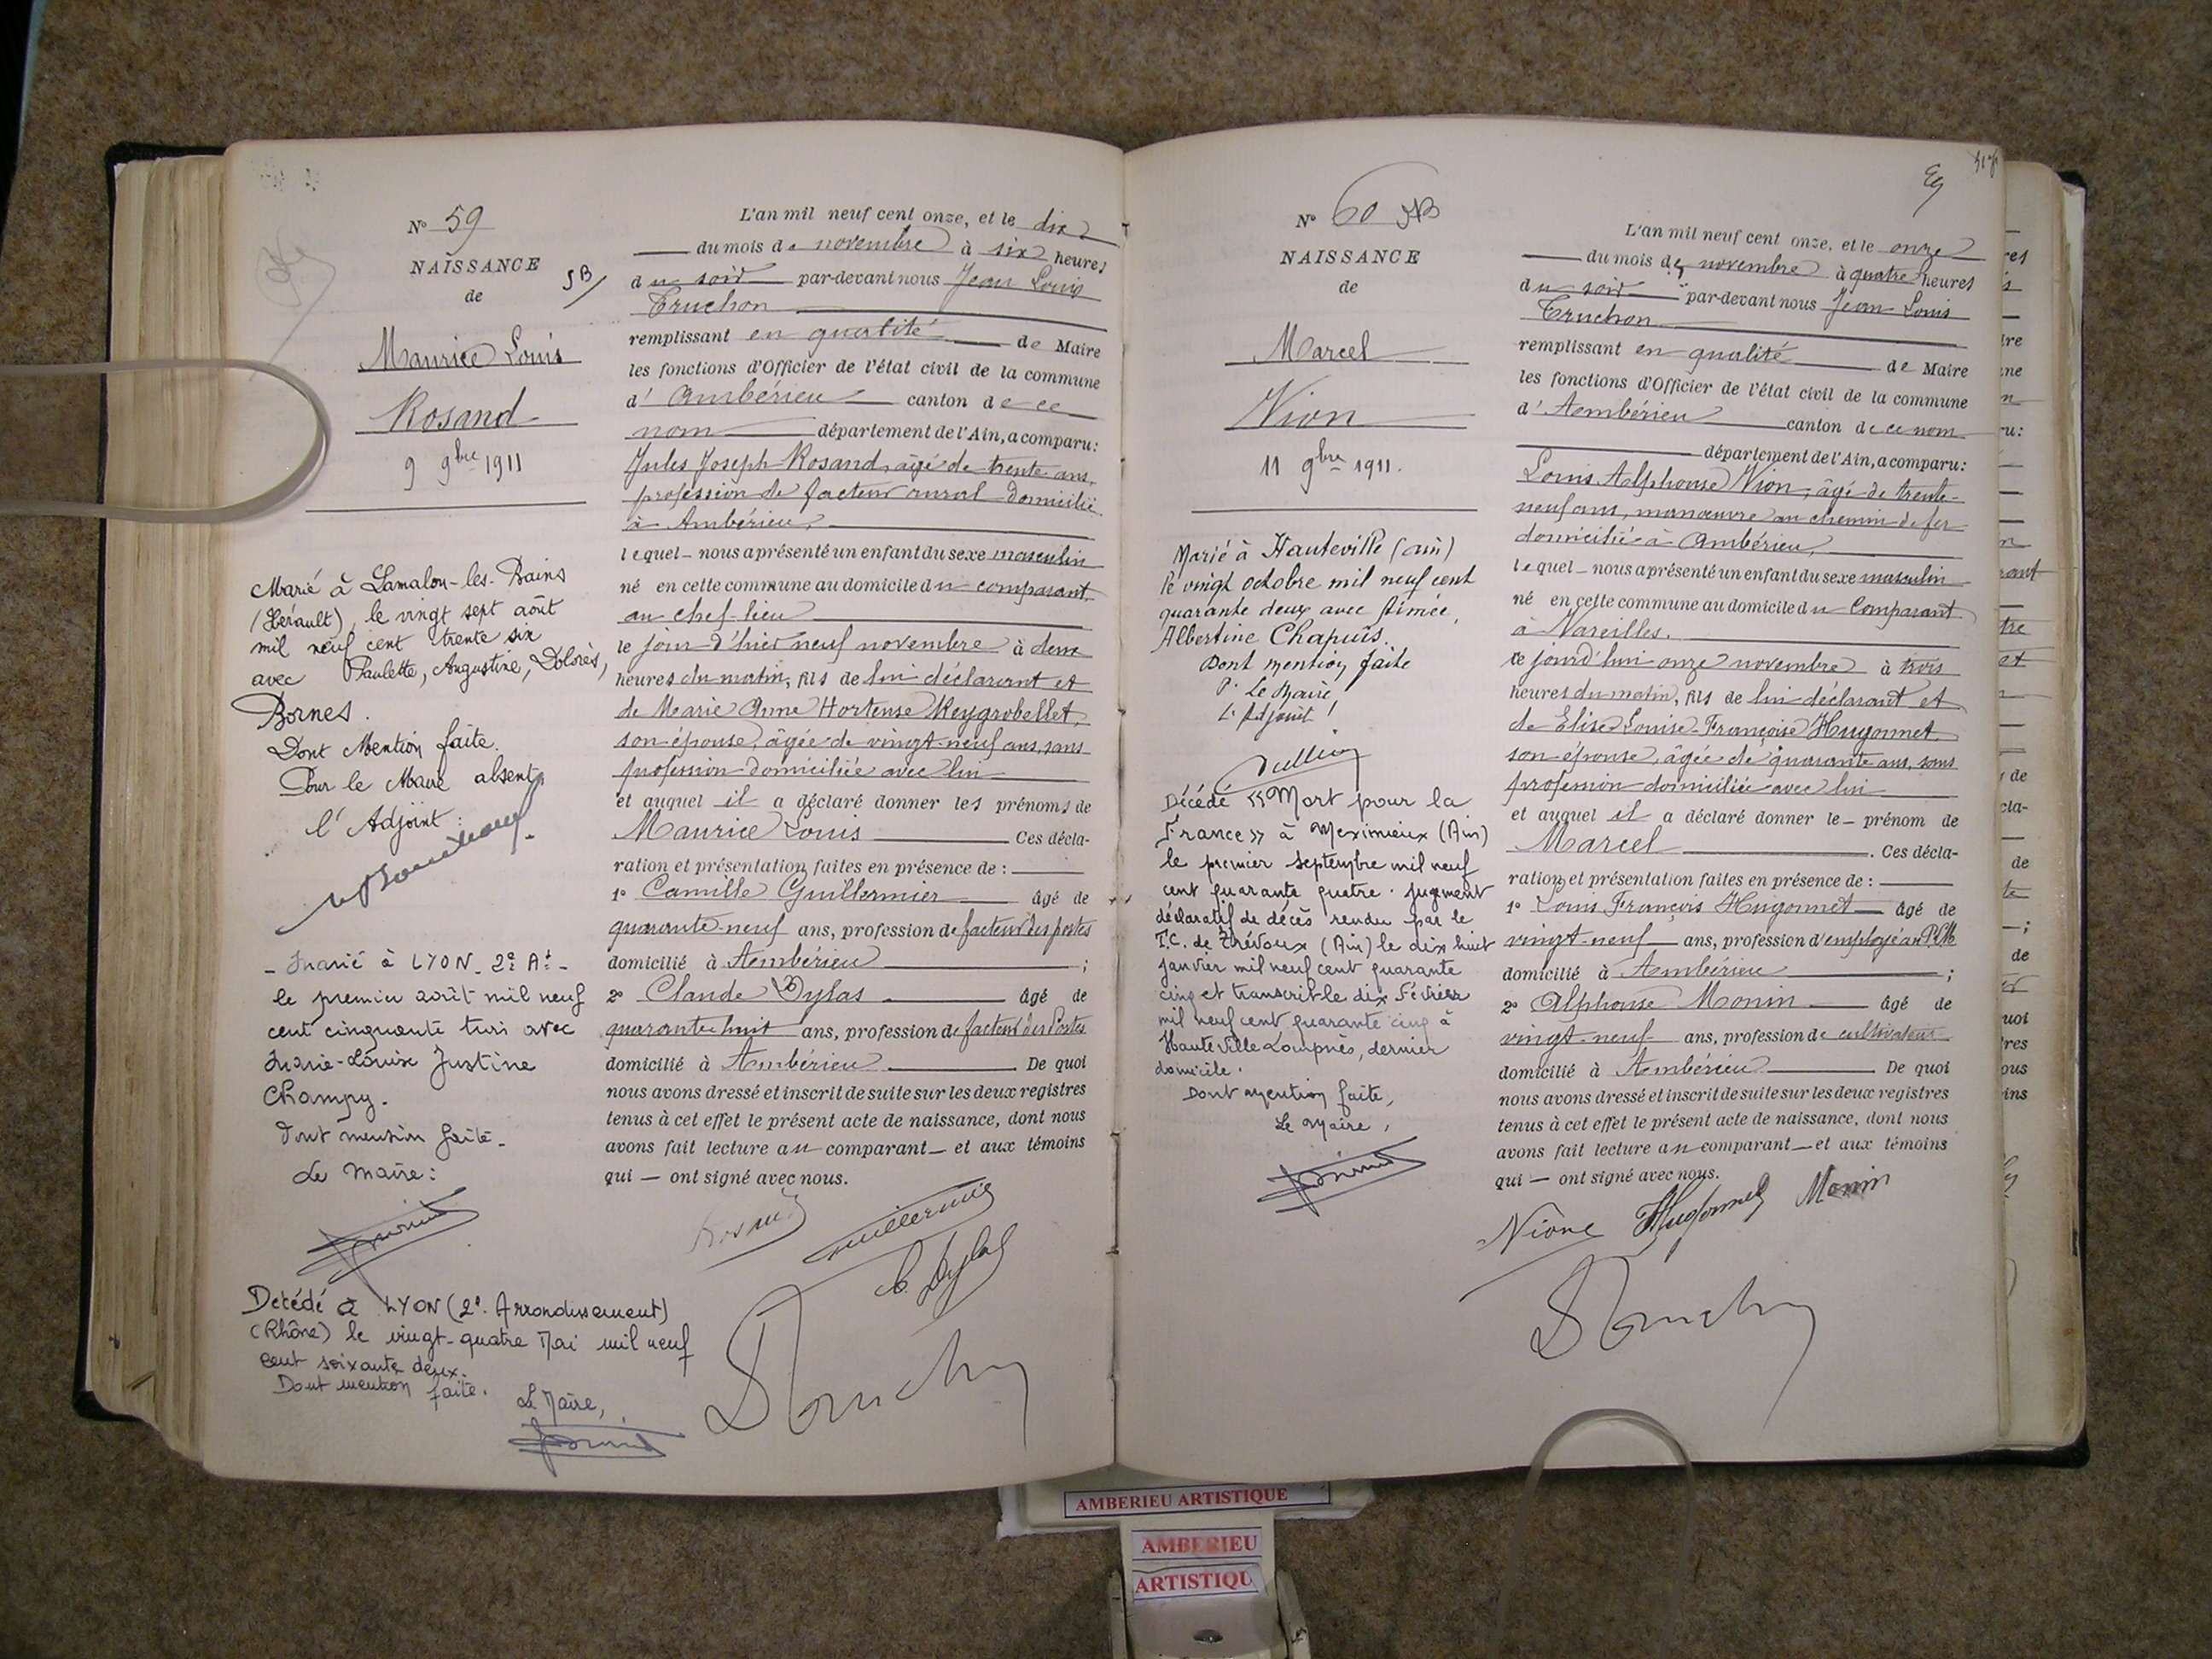 N° 59
NAISSANCE
de
Maurice Louis
Rosand
9 9bre 1911
Marié à Lamalou-les-Bains
(Hérault), le vingt sept août
mil neuf cent trente six
avec Paulette, Augustine, Dolorès,
Bornes.
Dont Mention faite.
Pour le Maire absent,
l'Adjoint:
- Marié à LYON - 2e At -
le premier août mil neuf
cent cinquante trois avec
Marie-Louise Justine
Champy.
Dont mention faite -
Le Maire:
Décédé à LYON (2e. Arrondissement)
(Rhône) le vingt-quatre Mai mil neuf
cent soixante deux.
Dont mention faite.
Le Maire,
L'an mil neuf cent onze, et le dix
du mois de novembre à six heures
du soir par-devant nous Jean Louis
Truchon
remplissant en qualité de Maire
les fonctions d'Officier de l'état civil de la commune
d' Ambérieu canton de ce
nom département de l'Ain, a comparu:
Jules Joseph Rosand, âgé de trente ans,
profession de facteur rural domicilié
à Ambérieu,
lequel - nous a présenté un enfant du sexe masculin
né en cette commune au domicile du comparant
au chef-lieu
le jour d'hier neuf novembre à deux
heures du matin, fils de lui déclarant et
de Marie Anne Hortense Reygrobellet,
son épouse, âgée de vingt neuf ans, sans
profession domiciliée avec lui
et auquel il a déclaré donner les prénoms de
Maurice Louis Ces décla-
ration et présentation faites en présence de :
1° Camille Guillermier âgé de
quarante-neuf ans, profession de facteur des postes
domicilié à Ambérieu ;
2° Claude Dylas âgé de
quarante huit ans, profession de facteur des Postes
domicilié à Ambérieu De quoi
nous avons dressé et inscrit de suite sur les deux registres
tenus à cet effet le présent acte de naissance, dont nous
avons fait lecture au comparant - et aux témoins
qui - ont signé avec nous.
Rosand
Guillermier
C. Dylas
Truchon
N° 60
NAISSANCE
de
Marcel
Nion
11 9bre 1911.
Marié à Hauteville (Ain)
le vingt octobre mil neuf cent
quarante deux avec Aimée,
Albertine Chapuis.
Dont mention faite
P. Le Maire,
L'Adjoint !
Décédé "Mort pour la
France" à Meximieux (Ain)
le premier septembre mil neuf
cent quarante quatre. jugement
déclaratif de décès rendu par le
T.C. de Trévoux (Ain) le dix huit
janvier mil neuf cent quarante
cinq et transcrit le dix Février
mil neuf cent quarante cinq à
Hauteville Lompnès, dernier
domicile.
Dont mention faite,
Le Maire,
L'an mil neuf cent onze, et le onze
du mois de novembre à quatre heures
du soir par-devant nous Jean Louis
Truchon
remplissant en qualité de Maire
les fonctions d'Officier de l'état civil de la commune
d' Ambérieu canton de ce nom
département de l'Ain, a comparu:
Louis Alphonse Nion, âgé de trente-
neuf ans, manœuvre au chemin de fer
domicilié à Ambérieu,
lequel - nous a présenté un enfant du sexe masculin
né en cette commune au domicile du Comparant
à Vareilles.
le jourd'hui onze novembre à trois
heures du matin, fils de lui déclarant et
de Elise Louise Françoise Hugonnet,
son épouse, âgée de quarante ans, sans
profession domiciliée avec lui
et auquel il a déclaré donner le - prénom de
Marcel . Ces décla-
ration et présentation faites en présence de :
1° Louis François Hugonnet âgé de
vingt-neuf ans, profession d'employé au P.L.M.
domicilié à Ambérieu ;
2° Alphonse Monin âgé de
vingt-neuf ans, profession de cultivateur
domicilié à Ambérieu De quoi
nous avons dressé et inscrit de suite sur les deux registres
tenus à cet effet le présent acte de naissance, dont nous
avons fait lecture au comparant - et aux témoins
qui - ont signé avec nous.
Nion Hugonnet Monin
Truchon
AMBERIEU ARTISTIQUE
AMBERIEU
ARTISTIQU